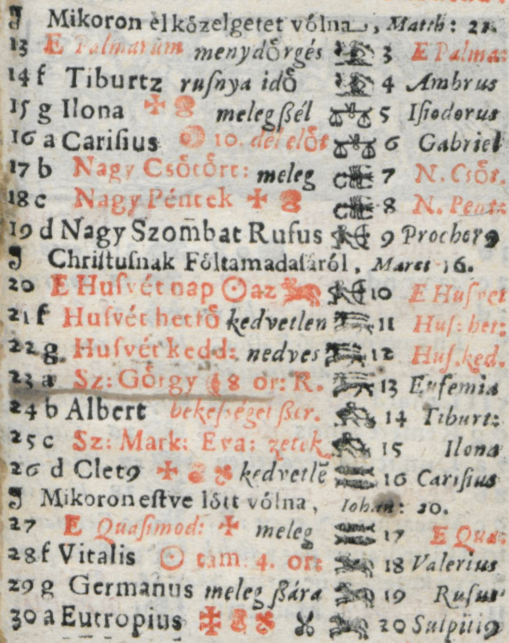 J Mikoron elközelgetet vólna, Matth: 21.
13 E Palmarum menydörgés 3 E Palma:
14 f Tiburtz rusnya idő 4 Ambrus
15 g Ilona melegßél 5 Isiodorus
16 a Carisius 10. dél előt 6 Gabriel
17 b Nagy Csőtőrt: meleg 7 N. Csőt.
18 c Nagy Péntek 8 N. Pent:
19 d Nagy Szom̃bat Rufus 9 Prochor9
J Christusnak Föltamadasáról, Marci 16.
20 E Husvét nap az 10 E Husvet
21 f Husvét hetfő kedvetlen 11 Hus: het:
22 g Husvét kedd: nedves 12 Hus. ked.
23 a Sz: Győrgy 8 or: R. 13 Eufemia
24 b Albert bekeßéget ßer. 14 Tiburt:
25 c Sz: Mark: Eva: 15 Ilona
26 d Clet9 kedvetlē 16 Carisius
J Mikoron estve lött vólna, Iohan: 20.
27 E Quasimod: meleg 17 E Qua:
28 f Vitalis tám. 4. ort 18 Valerius
29 g Germanus meleg ßára 19 Rufus
30 a Eutropius 20 Sulpiti9